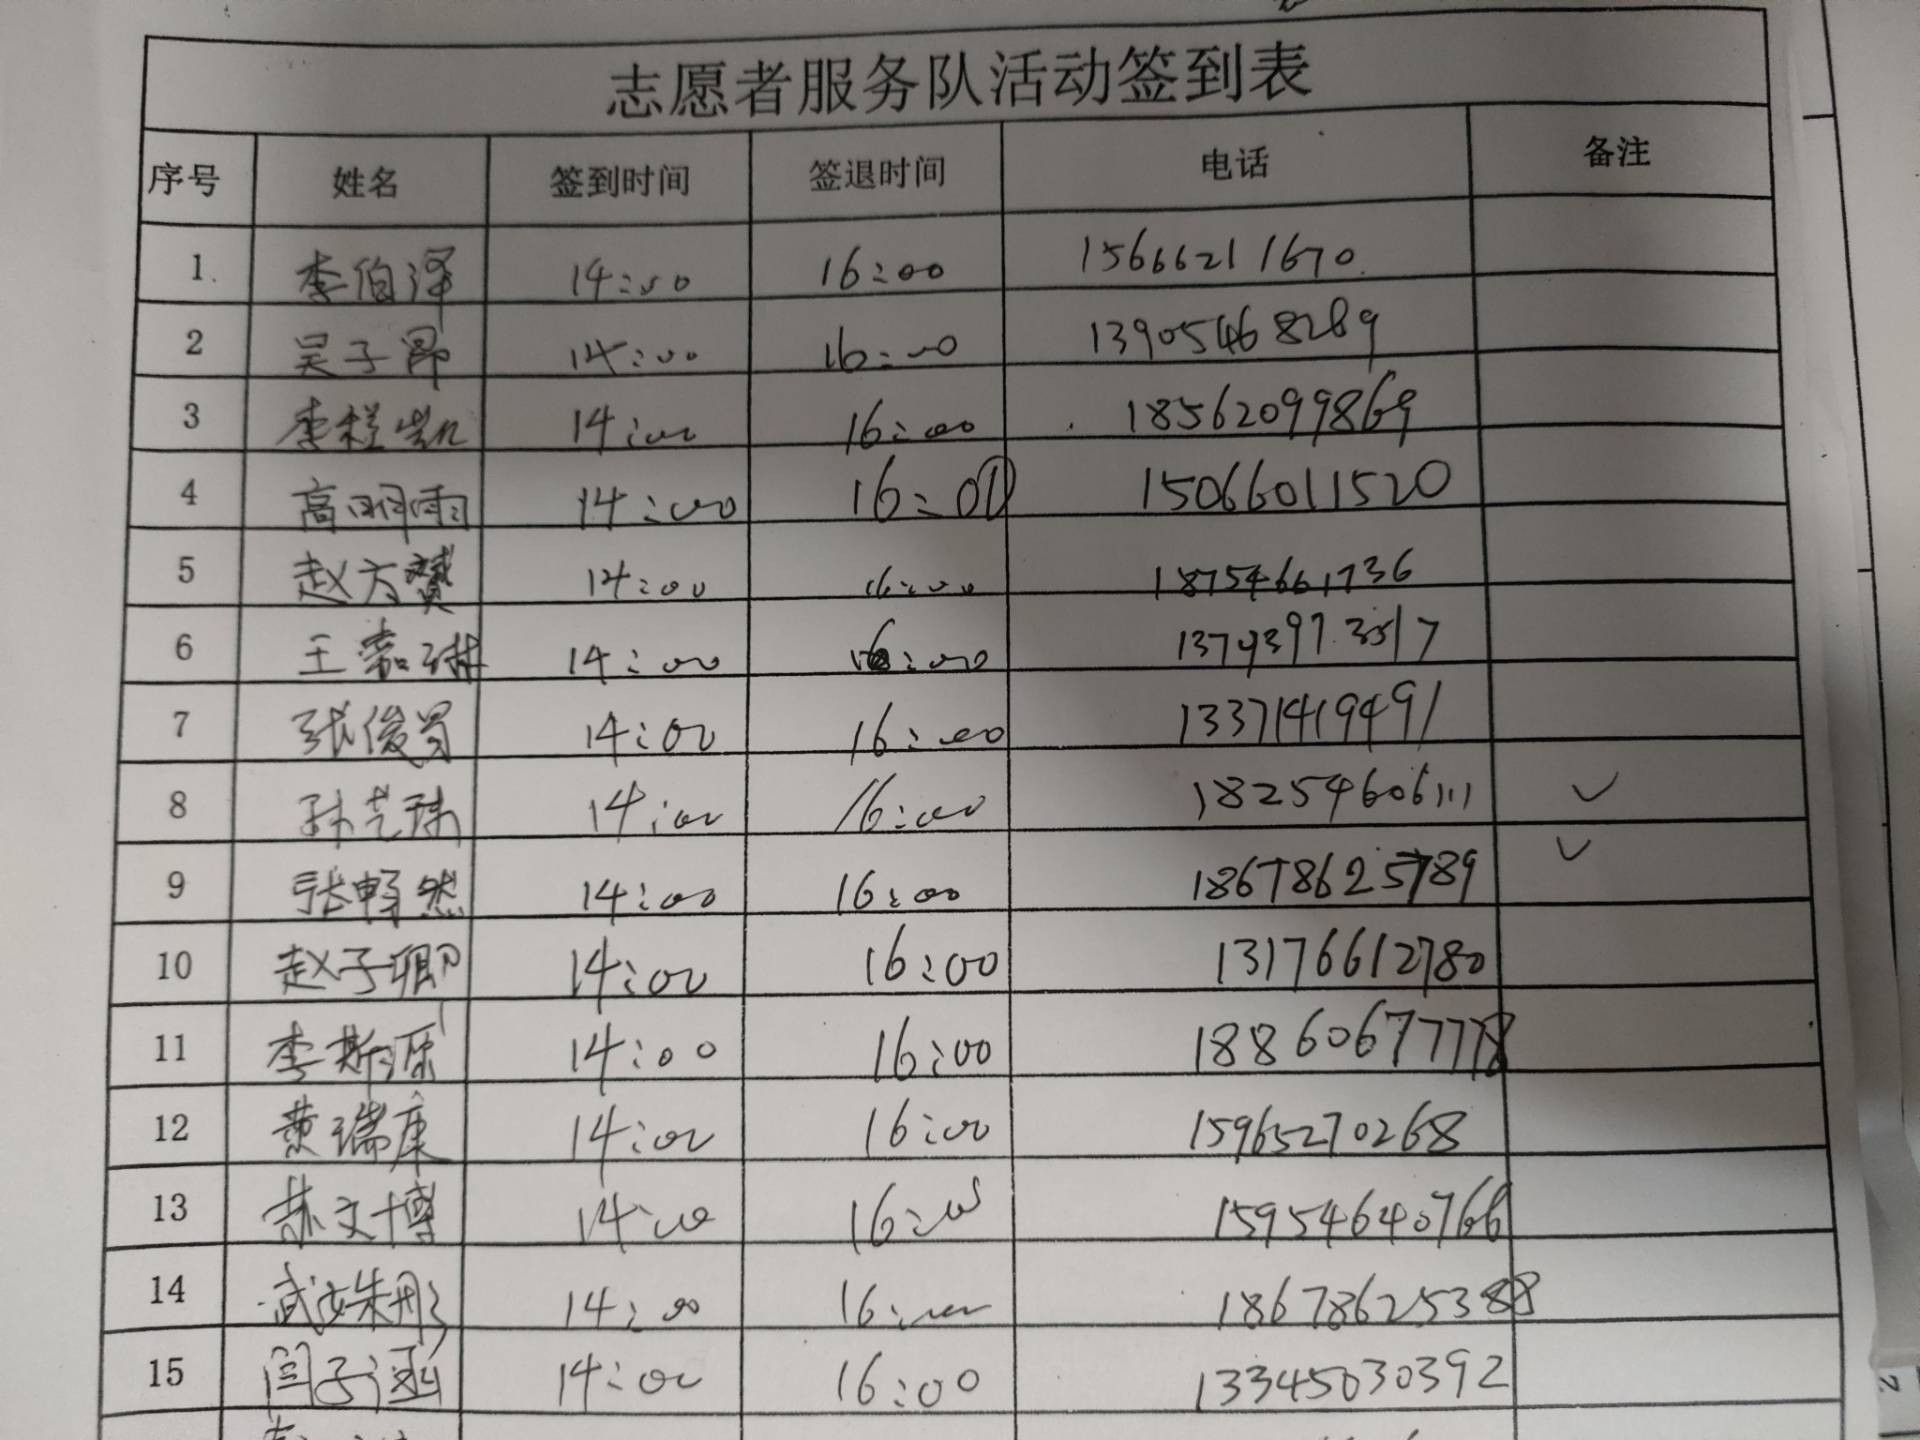 志愿者服务队活动签到表
序号 姓名 签到时间 签退时间 电话 备注
1. 李伯泽 14:00 16:00 15666211670
2 吴子昂 14:00 16:00 13905468289
3 李程凯 14:00 16:00 18562099869
4 高明雨 14:00 16:00 15066011520
5 赵方赟 14:00 16:00 18754661736
6 王嘉琳 14:00 16:00
7 张俊 14:00 16:00 13371419491
8 孙艺 14:00 16:00 18254606111 ✓
9 张畅然 14:00 16:00 18678625789 ✓
10 赵子卿 14:00 16:00 13176612780
11 李斯源 14:00 16:00 18860677778
12 黄瑞康 14:00 16:00 15965270268
13 苏文博 14:00 16:00 15954640766
14 武姝彤 14:00 16:00 18678625388
15 闫子涵 14:00 16:00 13345030392